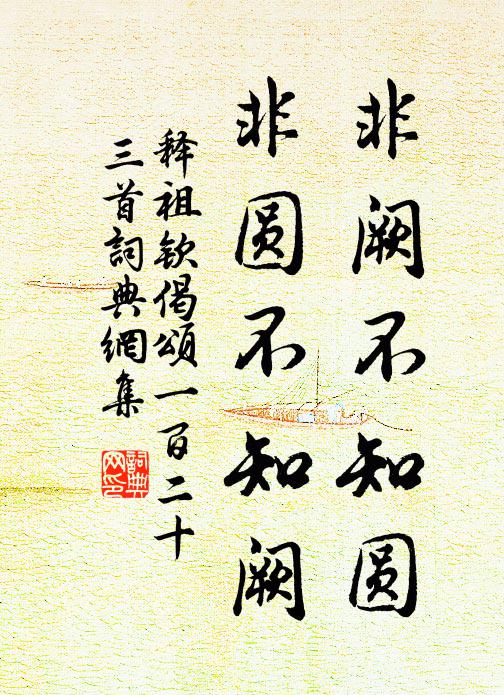 非阙不知圆
非圆不知阙
释祖钦偈頌一百二十
三首詞典網集
詞典网印